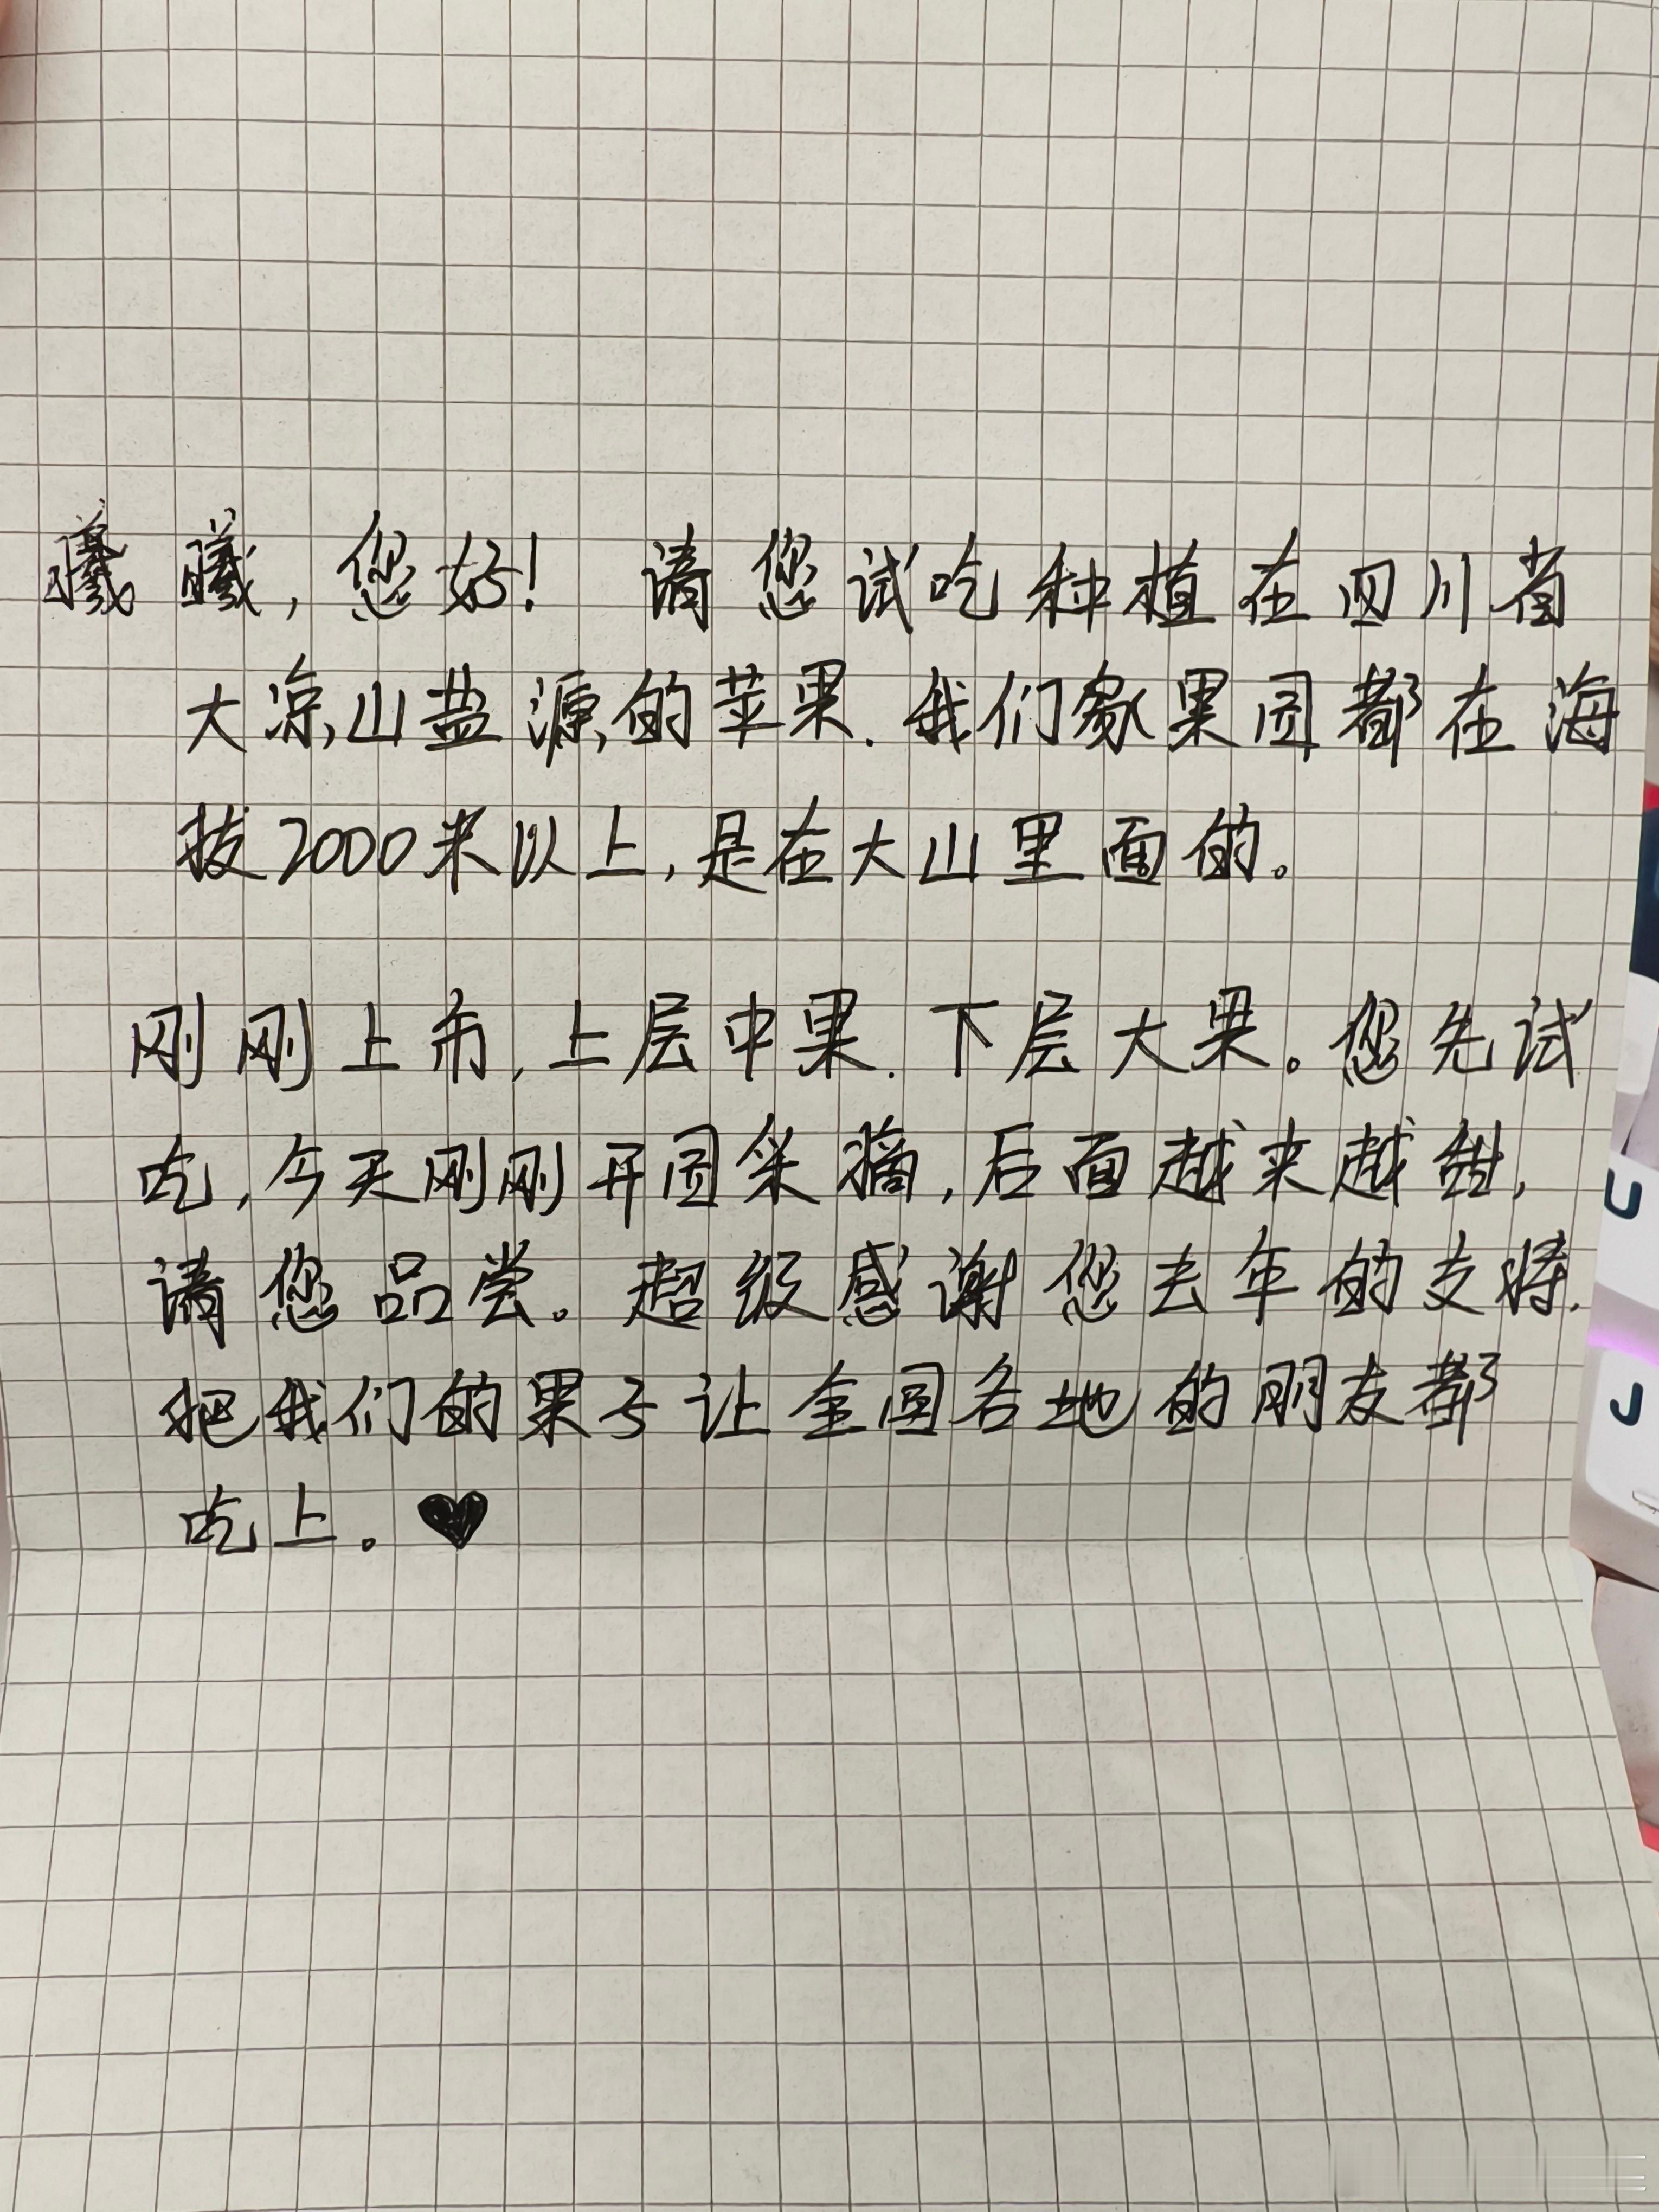 曦曦，您好！ 请您试吃种植在四川省
大凉山盐源的苹果. 我们家果园都在海
拔2000米以上，是在大山里面的。
刚刚上市，上层中果. 下层大果。您先试
吃，今天刚刚开园采摘，后面越来越甜，
请您品尝。超级感谢您去年的支持.
把我们的果子让全国各地的朋友都
吃上。♥
U
J